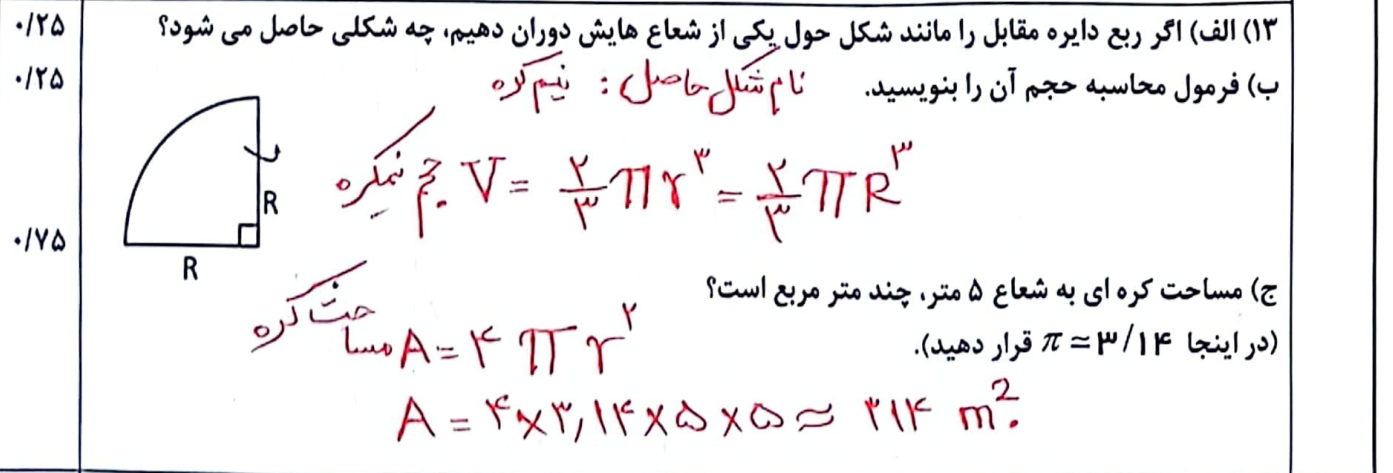 ۰/۲۵
۱۳) الف) اگر ربع دایره مقابل را مانند شکل حول یکی از شعاع هایش دوران دهیم، چه شکلی حاصل می شود؟
۰/۲۵
ب) فرمول محاسبه حجم آن را بنویسید.
نام شکل حاصل : نیم کره
حجم نیمکره V = ۲/۳ π r^۳ = ۲/۳ π R^۳
R
R
۰/۷۵
ج) مساحت کره ای به شعاع ۵ متر، چند متر مربع است؟
(در اینجا π ≃ ۳/۱۴ قرار دهید).
مساحت کره A = ۴ π r^۲
A = ۴ × ۳,۱۴ × ۵ × ۵ ≈ ۳۱۴ m².